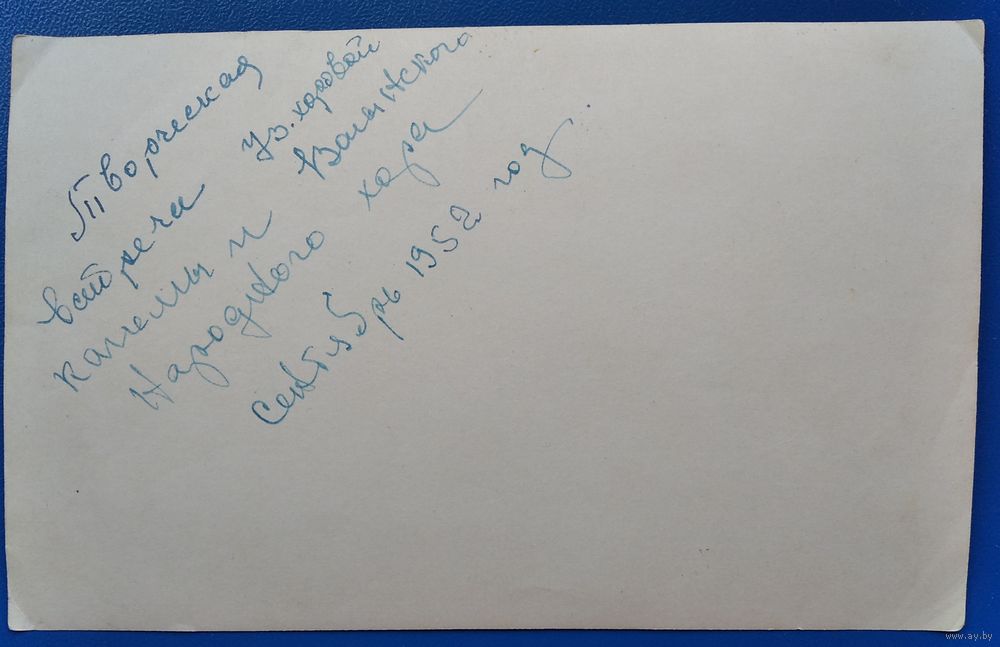 Творческая
встреча Уз. хоровой
капеллы и Волынского
Народного хора
Сентябрь 1952 год.
www.ay.by